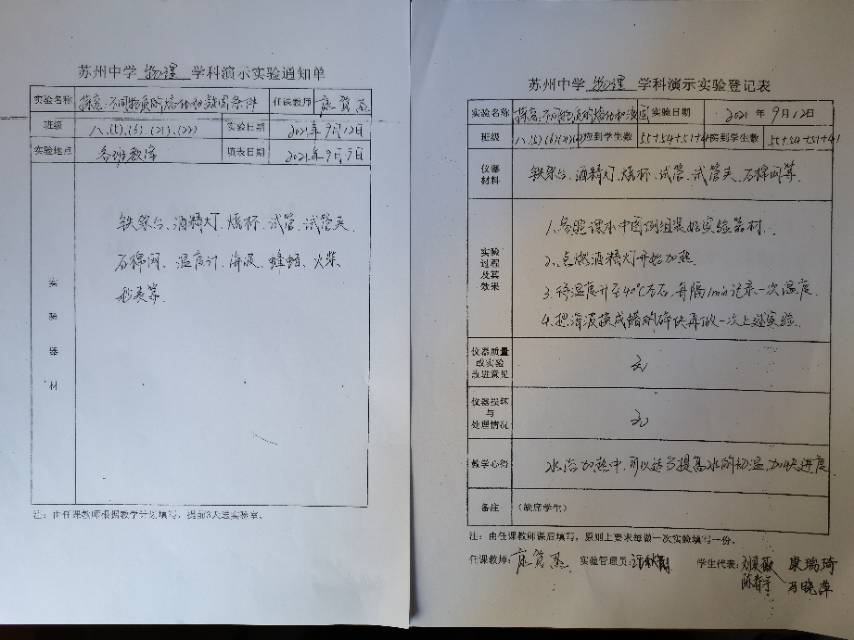 苏州中学 物理 学科演示实验通知单
实验名称 探究:不同物质的熔化和凝固条件 任课教师
班级 八.(5).(6).(21).(22) 实验日期 2021年9月12日
实验地点 各班教室 填表日期 2021年9月9日
实验器材
铁架台、酒精灯、烧杯、试管、试管夹
石棉网、温度计、海波、蜂蜡、火柴、
秒表等.
注:由任课教师根据教学计划填写,提前3天送实验室。
苏州中学 物理 学科演示实验登记表
实验名称 探究:不同物质的熔化和凝固 实验日期 2021 年 9月12日
班级 八.(5)(6)(21)(22) 应到学生数 55+54+51+41 实到学生数 55+54+51+41
仪器材料 铁架台、酒精灯、烧杯、试管、试管夹、石棉网等.
实验过程及其效果
1.参照课本中图例组装好实验器材.
2.点燃酒精灯开始加热.
3.待温度升至40℃左右,每隔1min记录一次温度.
4.把海波换成蜡的碎块再做一次上述实验.
仪器质量或实验改进意见 无
仪器损坏与处理情况 无
教学心得 水浴加热中,可以适当提高水的初温,加快进度
备注 (缺席学生)
注:由任课教师课后填写,原则上要求每做一次实验填写一份。
任课教师: 实验管理员: 学生代表: 康瑞琦
冯晓萍